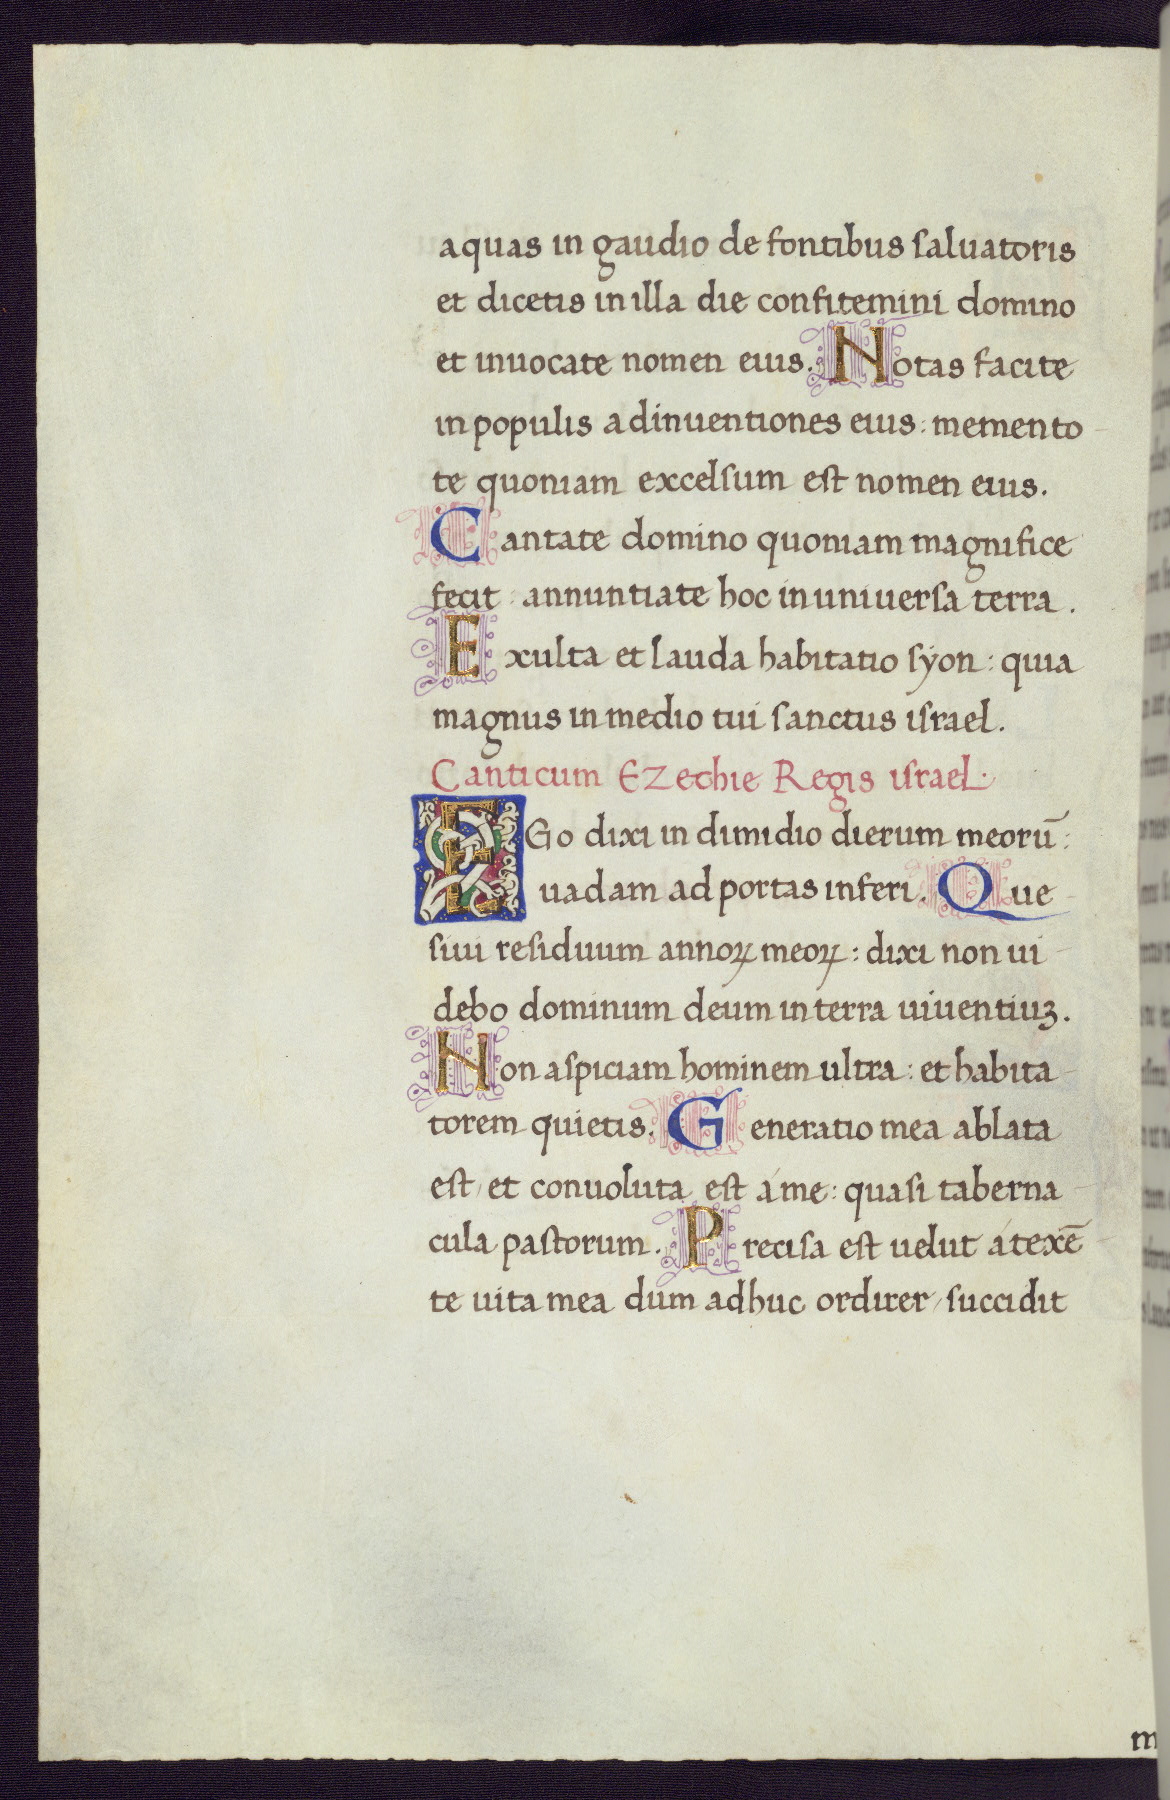 aquas in gaudio de fontibus saluatoris
et dicetis in illa die confitemini domino
et inuocate nomen eius. Notas facite
in populis adinuentiones eius: memento
te quoniam excelsum est nomen eius.
Cantate domino quoniam magnifice
fecit: annuntiate hoc in uniuersa terra.
Exulta et lauda habitatio sÿon: quia
magnus in medio tui sanctus israel.
Canticum Ezechie Regis israel.
EGo dixi in dimidio dierum meorū:
uadam ad portas inferi. Que
siui residuum annoꝝ meoꝝ: dixi non ui
debo dominum deum in terra uiuentiuꝫ.
Non aspiciam hominem ultra: et habita
torem quietis. Generatio mea ablata
est, et conuoluta est á me: quasi taberna
cula pastorum. Precisa est uelut á texē
te uita mea dum adhuc ordirer, succidit
m